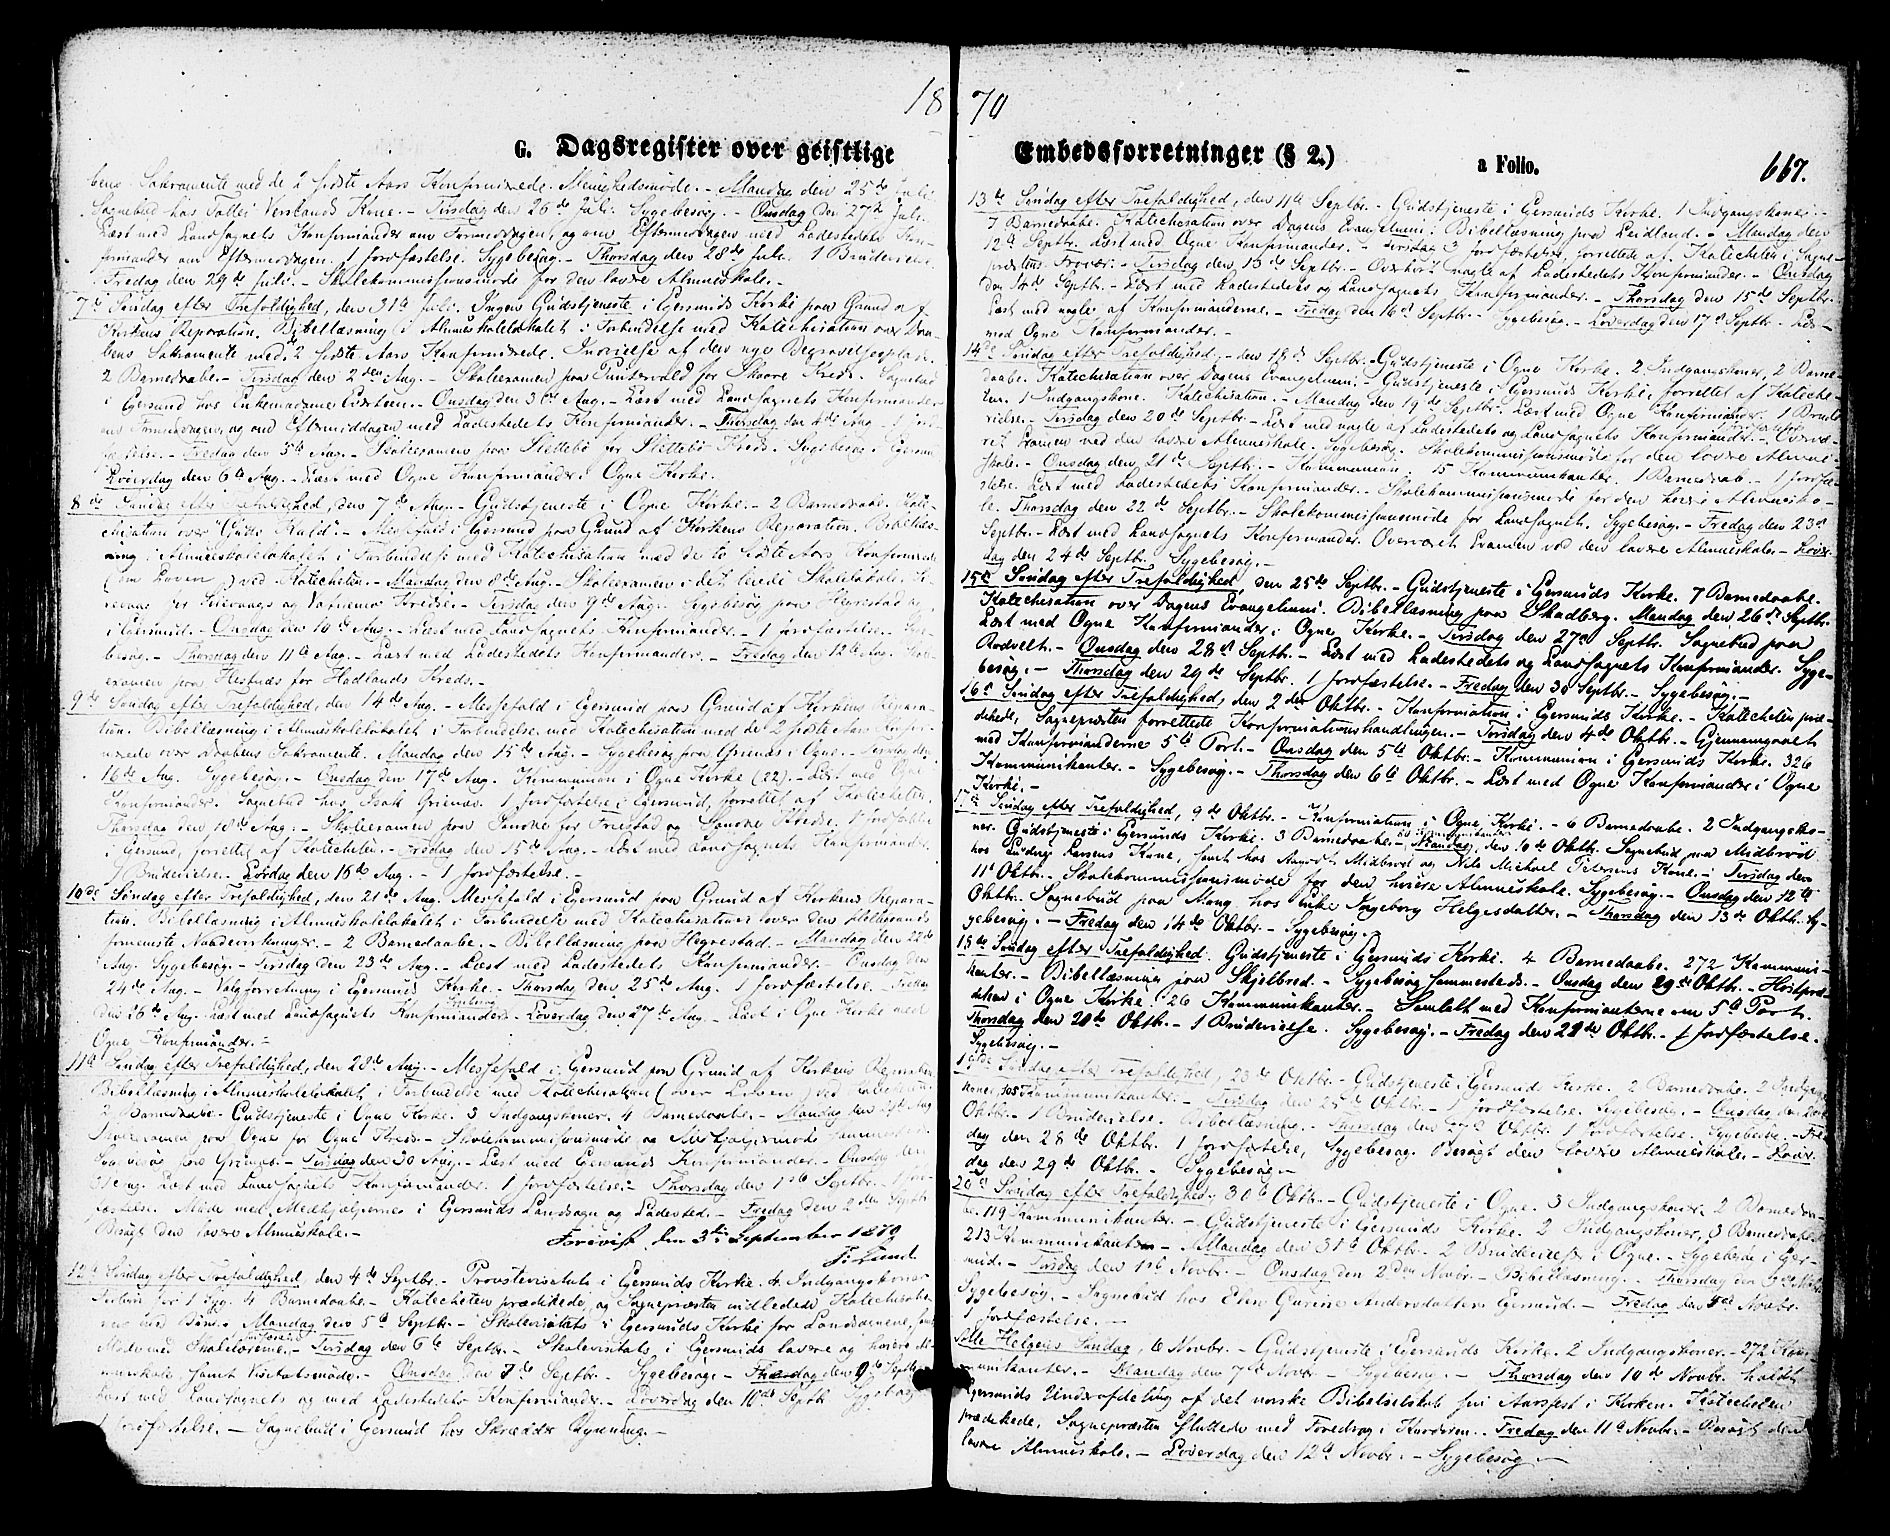 1870
G. Dagsregister over geistlige Embedsforretninger (§ 2.) a Folio. 667.
bens Sakramente med de 2 sidste Aars Konfirmerede. Menighedsmøde. - Mandag den 25de Juli.
Sognebud hos Tollef Verslands Kone. - Tirsdag den 26de Juli. Sygebesøg. - Onsdag den 27de Juli.
Læst med Landsognets Konfirmander om Formiddagen, og om Eftermiddagen med Ladestedets Kon-
firmander om Eftermiddagen. 1 Jordfæstelse. Sygebesøg. - Thorsdag den 28de Juli. 1 Brudevielse.
Fredag den 29de Juli. - Skolekommissionsmøde for den lavere Almueskole. -
7de Søndag efter Trefoldighed, den 31te Juli. Ingen Gudstjeneste i Egersunds Kirke paa Grund af
Kirkens Reparation. Bibellæsning i Almueskolelokalet i Forbindelse med Katechisation over Daa-
bens Sakramente med de 2 sidste Aars Konfirmerede. Indvielse af den nye Begravelsesplads.
2 Barnedaabe. - Tirsdag den 2den Aug. - Skoleexamen paa for Skaare Kreds. Sognebud
i Egersund hos Enkemadame Evertsen. - Onsdag den 3die Aug. - Læst med Landsognets Konfirmander
om Formiddagen, og om Eftermiddagen med Ladestedets Konfirmander. - Thorsdag den 4de Aug. - 1 Jord-
fæstelse. - Fredag den 5te Aug. - Skoleexamen paa Slettebø for Slettebø Kreds. Sygebesøg i Egersund.
Løverdag den 6te Aug. - Læst med Ogne Konfirmander i Ogne Kirke.
8de Søndag efter Trefoldighed, den 7de Aug. - Gudstjeneste i Ogne Kirke. - 2 Barnedaabe. Kate-
chisation over "Guds Kald". - Messefald i Egersund paa Grund af Kirkens Reparation. Bibellæs-
ning i Almueskolelokalet i Forbindelse med Katechisation med de to sidste Aars Konfirmerede
(om Loven) ved Katecheten. - Mandag den 8de Aug. - Skoleexamen i det leiede Skolelokale
for og Vatnemo Kredse. - Tirsdag den 9de Aug. Sygebesøg paa Hegrestad og
i Egersund. - Onsdag den 10de Aug. - Læst med Landsognets Konfirmander. - 1 Jordfæstelse. Syge-
besøg. - Thorsdag den 11te Aug. - Læst med Ladestedets Konfirmander. - Fredag den 12te Aug. Skole-
examen paa Hestnes for Hadlands Kreds. -
9de Søndag efter Trefoldighed, den 14de Aug. - Messefald i Egersund paa Grund af Kirkens Repara-
tion. Bibellæsning i Almueskolelokalet i Forbindelse med Katechisation med de 2 sidste Aars Konfir-
merede over Daabens Sakramente. Mandag den 15de Aug. - Sygebesøg paa i Ogne. - Tirsdag den
16de Aug. Sygebesøg. - Onsdag den 17de Aug. Kommunion i Ogne Kirke (22). - Læst med Ogne
Konfirmander. Sognebud hos Isak. 1 Jordfæstelse i Egersund, forrettet af Katecheten.
Thorsdag den 18de Aug. - Skoleexamen paa for og Kredse. 1 Jordfæstelse
i Egersund, forrettet af Katecheten. - Fredag den 15de Aug. - Læst med Landsognets Konfirmander.
1 Brudevielse. Lørdag den 16de Aug. - 1 Jordfæstelse. -
10de Søndag efter Trefoldighed, den 21de Aug. Messefald i Egersund paa Grund af Kirkens Repara-
tion. Bibellæsning i Almueskolelokalet i Forbindelse med Katechisation over den
. - 2 Barnedaabe. - Bibellæsning paa Hegrestad. - Mandag den 22de
Aug. Sygebesøg. - Tirsdag den 23de Aug. - Læst med Ladestedets Konfirmander. - Onsdag den
24de Aug. - Valgforretning i Egersunds Kirke. - Thorsdag den 25de Aug. 1 Jordfæstelse. - Fredag
den 26de Aug. Læst med Landsognets Konfirmander. Løverdag den 27de Aug. - Læst i Ogne Kirke med
Ogne Konfirmander. -
11te Søndag efter Trefoldighed, den 28de Aug. - Messefald i Egersund paa Grund af Kirkens Reparation
Bibellæsning i Almueskolelokalet i Forbindelse med Katechisation (over Loven) ved Katecheten.
2 Barnedaabe. Gudstjeneste i Ogne Kirke. 3 Indgangskoner. 4 Barnedaabe. - Mandag den 29de Aug.
Skoleexamen paa Ogne for Ogne Kreds. - Skolekommissionsmøde og Medhjælpermøde sammesteds.
Sygebesøg paa. - Tirsdag den 30 Aug. - Læst med Egersunds Konfirmander. - Onsdag den
31 Aug. Læst med Landsognets Konfirmander. 1 Jordfæstelse. - Thorsdag den 1ste Septbr. - 1 Jord-
fæstelse. Møde med Medhjælperne i Egersunds Landsogn og Ladested. - Fredag den 2den Septbr.
Besøgt den lavere Almueskole. -
Forevist den 3die September 1870
F. Lund.
12te Søndag efter Trefoldighed, den 4de Septbr. - Provstevisitats i Egersunds Kirke. 4 Indgangskoner
Forbøn for 1 Syg. 4 Barnedaabe. - Katecheten prædikede, og Sognepræsten indledede Katechisatio-
nen med Bøn. - Mandag den 5te Septbr. - Skolevisitats i Egersunds Kirke for Landsognene, samt
Møde med Skolelærerne. - Tirsdag den 6te Septbr. - Skolevisitats i Egersunds lavere og høiere Al-
mueskole samt Visitatsmøde. - Onsdag den 7de Septbr. - Sygebesøg. - Fredag den 9de Septbr.
Læst med Landsognets og med Ladestedets Konfirmander. - Løverdag den 10de Septbr. Sygebesøg.
1 Jordfæstelse. - Sognebud i Egersund hos Skrædder. -
13de Søndag efter Trefoldighed, den 11te Septbr. - Gudstjeneste i Egersunds Kirke. 1 Indgangskone. -
7 Barnedaabe. Katechisation over Dagens Evangelium. Bibellæsning paa Leidland. - Mandag den
12te Septbr. Læst med Ogne Konfirmander. - 3 Jordfæstelser, forrettede af Katecheten i Sogne-
præstens Fravær. - Tirsdag den 13de Septbr. - Overhørt nogle af Ladestedets Konfirmander. - Onsdag
den 14de Septbr. - Læst med Ladestedets og Landsognets Konfirmander. - Thorsdag den 15de Septbr.
Læst med nogle af Konfirmanderne. - Fredag den 16de Septbr. - Sygebesøg. - Løverdag den 17de Septbr. - Læst
med Ogne Konfirmander. -
14de Søndag efter Trefoldighed, - den 18de Septbr. - Gudstjeneste i Ogne Kirke. 2 Indgangskoner, 2 Barne-
daabe. Katechisation over Dagens Evangelium. - Gudstjeneste i Egersunds Kirke, forrettet af Kateche-
ten. 1 Indgangskone. Katechisation. - Mandag den 19de Septbr. Læst med Ogne Konfirmander. 1 Brude-
vielse. - Tirsdag den 20de Septbr. - Læst med nogle af Ladestedets og Landsognets Konfirmander. - Overvæ-
ret Examen ved den lavere Almueskole. Sygebesøg. Skolekommissionsmøde for den lavere Almue-
skole. - Onsdag den 21de Septbr. - Kommunion. 15 Kommunikanter. 1 Barnedaab. - 1 Jordfæ-
stelse. Læst med Ladestedets Konfirmander. - Skolekommissionsmøde for den høiere Almuesko-
le. Thorsdag den 22de Septbr. - Skolekommissionsmøde for Landsognet. Sygebesøg. - Fredag den 23de
Septbr. - Læst med Landsognets Konfirmander. Overværet Examen ved den lavere Almueskole. - Løver-
dag den 24de Septbr. Sygebesøg. -
15de Søndag efter Trefoldighed, den 25de Septbr. - Gudstjeneste i Egersunds Kirke. 7 Barnedaabe.
Katechisation over Dagens Evangelium. Bibellæsning paa Skadberg. Mandag den 26de Septbr.
Læst med Ogne Konfirmander i Ogne Kirke. - Tirsdag den 27de Septbr. Sognebud paa
Rodvelt. - Onsdag den 28de Septbr. - Læst med Ladestedets og Landsognets Konfirmander. Syge-
besøg. - Thorsdag den 29de Septbr. 1 Jordfæstelse. - Fredag den 30 Septbr. - Sygebesøg. -
16de Søndag efter Trefoldighed, den 2den Oktbr. - Konfirmation i Egersunds Kirke. - Katecheten præ-
dikede, Sognepræsten forrettede Konfirmationshandlingen. - Tirsdag den 4de Oktbr. - Gjennemgaaet
med Konfirmanderne 5te Part. - Onsdag den 5te Oktbr. - Kommunion i Egersunds Kirke. 326
Kommunikanter. - Sygebesøg. - Thorsdag den 6te Oktbr. - Læst med Ogne Konfirmander i Ogne
Kirke. -
17de Søndag efter Trefoldighed, 9de Oktbr. - Konfirmation i Ogne Kirke. - 6 Barnedaabe. 2 Indgangsko-
ner. Gudstjeneste i Egersunds Kirke. 3 Barnedaabe. - Mandag, den 10de Oktbr. Sognebud paa Midbrød
hos Ludvig Larsens Kone, samt hos Midbrød og Nils Michael Petersens Kone. - Tirsdag den
11te Oktbr. - Skolekommissionsmøde for den høiere Almueskole. Sygebesøg. - Onsdag den 12te
Oktbr. Sognebud paa Mong hos Enke Ingeborg Helgesdatter. - Thorsdag den 13de Oktbr. Sy-
gebesøg. - Fredag den 14de Oktbr. - Sygebesøg. -
18de Søndag efter Trefoldighed. Gudstjeneste i Egersunds Kirke. 4 Barnedaabe. 272 Kommuni-
kanter. - Bibellæsning paa Skjelbred. - Sygebesøg sammesteds. - Onsdag den 19de Oktbr. - Høstpræ-
diken i Ogne Kirke. 26 Kommunikanter. - Samlet med Konfirmanterne om 5te Part.
Thorsdag den 20de Oktbr. - 1 Brudevielse. Sygebesøg. - Fredag den 21de Oktbr. - 1 Jordfæstelse.
Sygebesøg. -
19de Søndag efter Trefoldighed, 23de Oktbr. - Gudstjeneste i Egersunds Kirke. 2 Barnedaabe. 2 Indgangs-
koner. 105 Kommunikanter. - Tirsdag den 25de Oktbr. - 1 Jordfæstelse. Sygebesøg. - Onsdag den 26de
Oktbr. - 1 Brudevielse. Bibellæsning. - Thorsdag den 27de Oktbr. 1 Jordfæstelse. Sygebesøg. - Fre-
dag den 28de Oktbr. 1 Jordfæstelse, Sygebesøg. Besøgt den lavere Almueskole. - Løver-
dag den 29de Oktbr. - Sygebesøg. -
20de Søndag efter Trefoldighed, 30te Oktbr. - Gudstjeneste i Ogne. 3 Indgangskoner. 2 Barnedaa-
be. 119 Kommunikanter. - Gudstjeneste i Egersunds Kirke. 2 Indgangskoner, 3 Barnedaabe
213 Kommunikanter. - Mandag den 31te Oktbr. 2 Brudevielser i Ogne. - Sygebesøg i Eger-
sund. - Tirsdag den 1ste Novbr. - Onsdag den 2den Novbr. - Bibellæsning. - Thorsdag den 3die Novbr.
Sygebesøg. - Sognebud hos Elen Gurine Andersdatter Egersund. - Fredag den 4de Novbr.
1 Jordfæstelse. -
Alle Helgens Søndag, 6 Novbr. - Gudstjeneste i Egersunds Kirke. 2 Indgangskoner. - 272 Kom-
munikanter. - Mandag den 7de Novbr. - Sygebesøg. - Thorsdag den 10de Novbr. holdt
Egersunds Underafdeling af det norske Bibelselskab sin Aarsfest i Kirken. Katecheten
prædikede, Sognepræsten sluttede med Foredrag i Kordøren. Fredag den 11te Novbr. - Besøgt den
lavere Almueskole. - Løverdag den 12te Novbr. - Sygebesøg. -